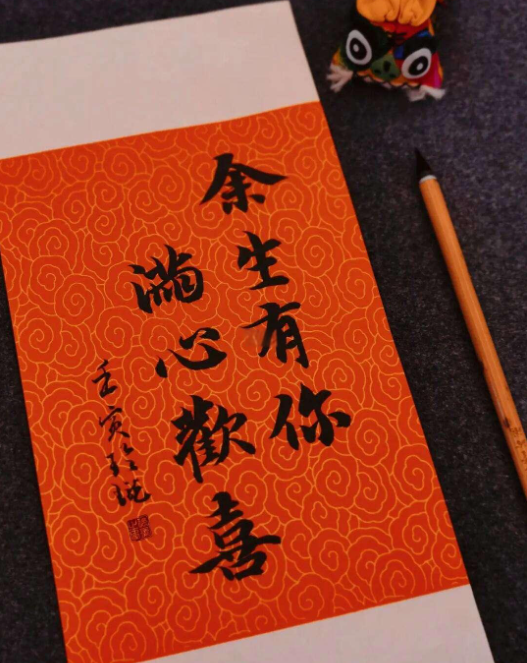 余生有你
滿心歡喜
壬寅玲珑